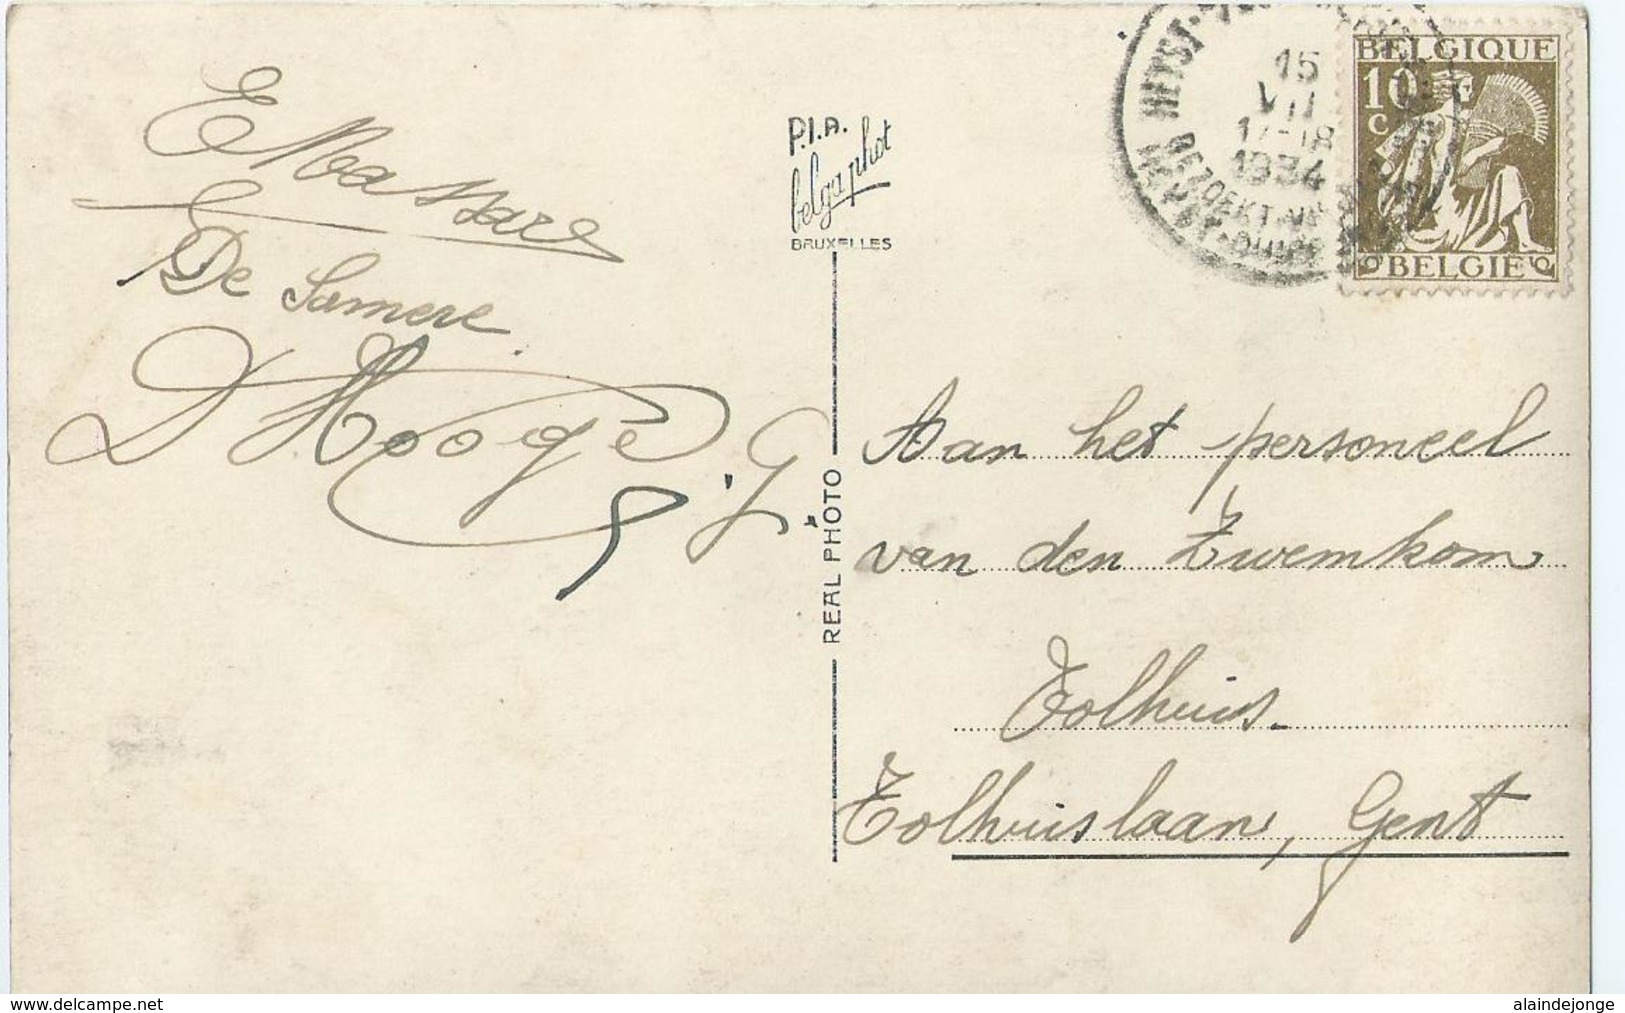 E Massare
De Samere
D'Hooge G.
P.I.A.
belgaphot
BRUXELLES
REAL PHOTO
15
VII
17-18
1934
HEYST
BEZOEKT
BELGIQUE
10
C
BELGIE
Aan het personeel
van den Zwemkom
Tolhuis.
Tolhuislaan, Gent
www.delcampe.net
alaindejonge